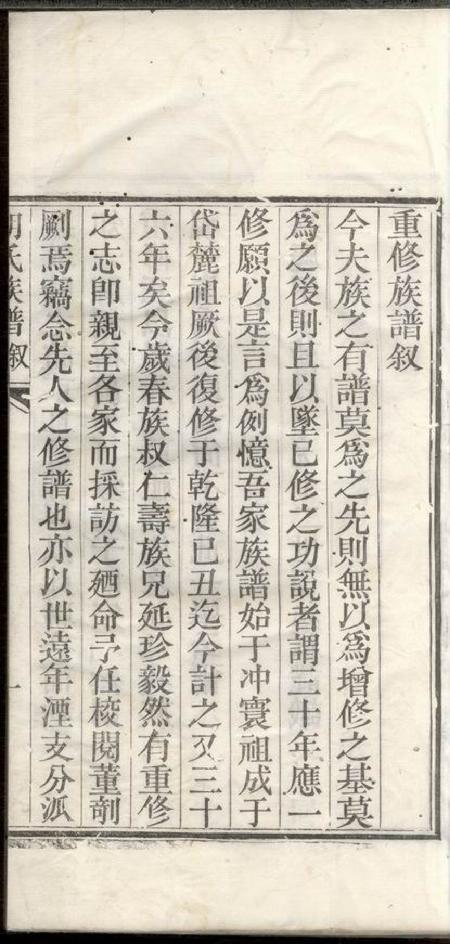 重修族譜叙
今夫族之有譜莫爲之先則無以爲增修之基莫
爲之後則且以墜已修之功說者謂三十年應一
修願以是言爲例憶吾家族譜始于冲寰祖成于
岱麓祖厥後復修于乾隆已丑迄今計之又三十
六年矣今歲春族叔仁壽族兄延珍毅然有重修
之志卽親至各家而採訪之廼命予任校閱董剞
劂焉竊念先人之修譜也亦以世遠年湮支分派
氏族譜叙
一